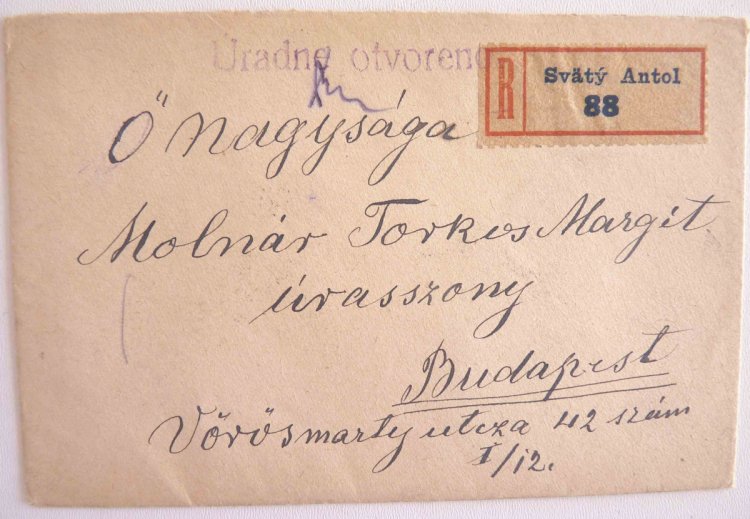 Úradne otvorené
R
Svätý Antol
88
Ő Nagysága
Molnár Torkos Margit
úrasszony
Budapest
Vörösmarty utcza 42 szám
I/12.